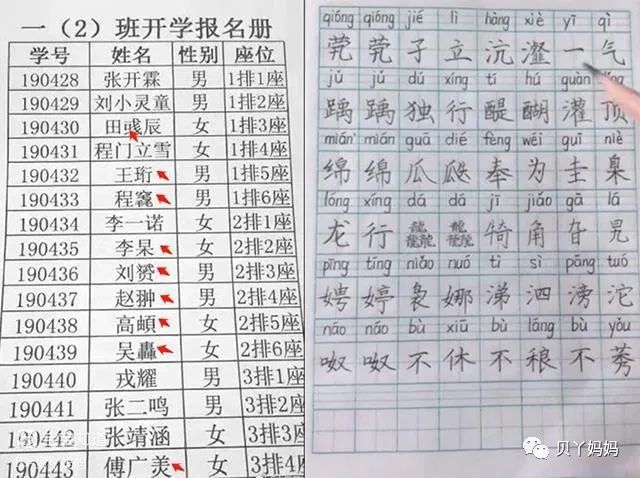 一（2）班开学报名册
学号 姓名 性别 座位
190428 张开霖 男 1排1座
190429 刘小灵童 男 1排2座
190430 田彧辰 女 1排3座
190431 程门立雪 女 1排4座
190432 王珩 男 1排5座
190433 程 男 1排6座
190434 李一诺 女 2排1座
190435 李杲 女 2排2座
190436 刘赟 男 2排3座
190437 赵翀 男 2排4座
190438 高頔 女 2排5座
190439 吴轟 女 2排6座
190440 戎耀 男 3排1座
190441 张二鸣 男 3排2座
张靖涵 女 3排3座
190443 傅广羙 女 3排4座
qióng qióng jié lì hàng xiè yī qì
茕茕孑立沆瀣一气
jǔ jǔ dú xíng tí hú guàn dǐng
踽踽独行醍醐灌顶
mián mián guā dié fèng wéi guī niè
绵绵瓜瓞奉为圭臬
lóng xíng dá dá jī jiǎo gā lá
龙行龘龘犄角旮旯
pīng tíng niǎo nuó tì sì pāng tuó
娉婷袅娜涕泗滂沱
náo náo bù xiū bù láng bù yǒu
呶呶不休不稂不莠
贝丫妈妈